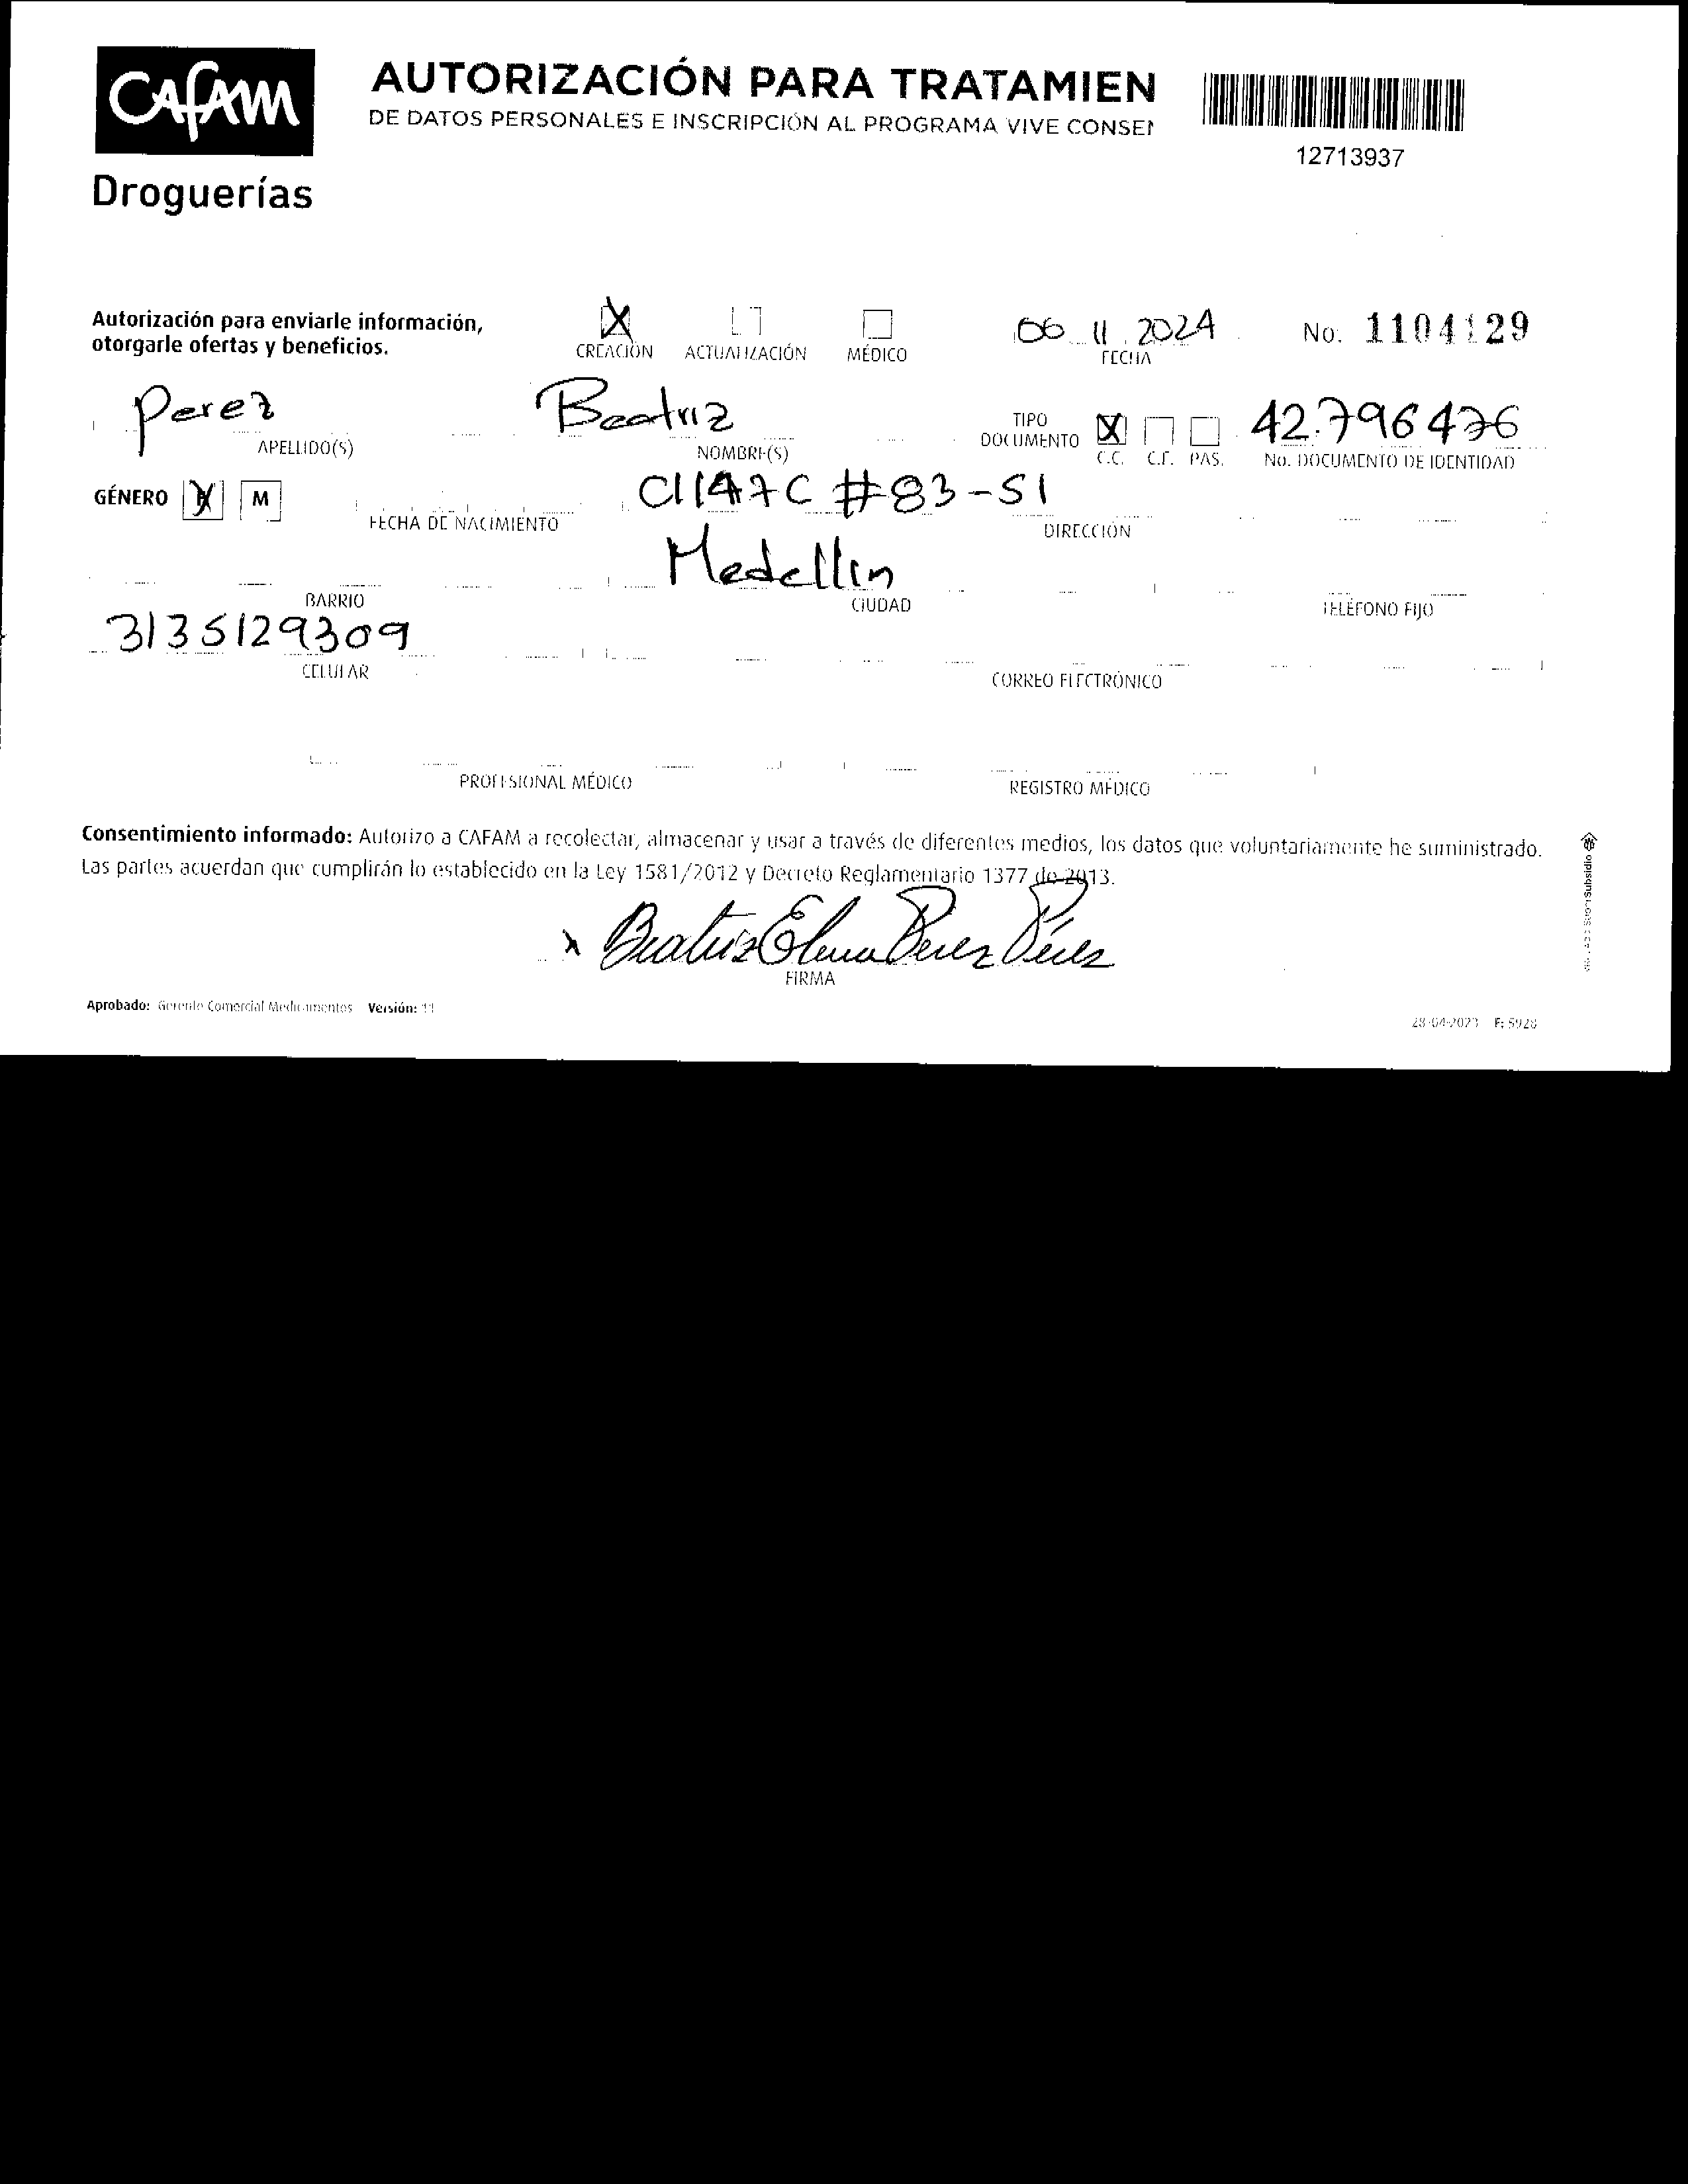 CAFAM
Droguerías
AUTORIZACIÓN PARA TRATAMIEN
DE DATOS PERSONALES E INSCRIPCIÓN AL PROGRAMA VIVE CONSEN
12713937
Autorización para enviarle información,
otorgarle ofertas y beneficios.
CREACIÓN ACTUALIZACIÓN MÉDICO
06 11 2024
FECHA
No. 1104129
Perez
APELLIDO(S)
Beatriz
NOMBRE(S)
TIPO
DOCUMENTO
X
C.C. C.E. PAS.
42.796476
No. DOCUMENTO DE IDENTIDAD
GÉNERO X M
FECHA DE NACIMIENTO
Cll47C #83-51
DIRECCIÓN
BARRIO
Medellin
CIUDAD
TELÉFONO FIJO
3135129309
CELULAR
CORREO ELECTRÓNICO
PROFESIONAL MÉDICO
REGISTRO MÉDICO
Consentimiento informado: Autorizo a CAFAM a recolectar, almacenar y usar a través de diferentes medios, los datos que voluntariamente he suministrado.
Las partes acuerdan que cumplirán lo establecido en la Ley 1581/2012 y Decreto Reglamentario 1377 de 2013.
x Beatriz Elena Perez Pérez
FIRMA
Aprobado: Gerente Comercial Medicamentos Versión: 11
28-04-2023 F: 5928